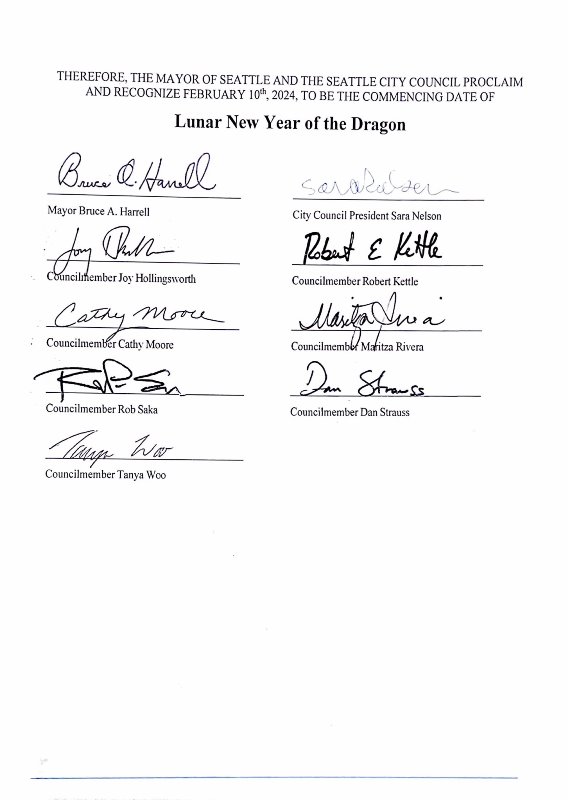 THEREFORE, THE MAYOR OF SEATTLE AND THE SEATTLE CITY COUNCIL PROCLAIM
AND RECOGNIZE FEBRUARY 10th, 2024, TO BE THE COMMENCING DATE OF
Lunar New Year of the Dragon
Bruce A. Harrell
Mayor Bruce A. Harrell
Sara Nelson
City Council President Sara Nelson
Joy
Councilmember Joy Hollingsworth
Robert E Kettle
Councilmember Robert Kettle
Cathy Moore
Councilmember Cathy Moore
Maritza Rivera
Councilmember Maritza Rivera
Councilmember Rob Saka
Dan Strauss
Councilmember Dan Strauss
Tanya Woo
Councilmember Tanya Woo